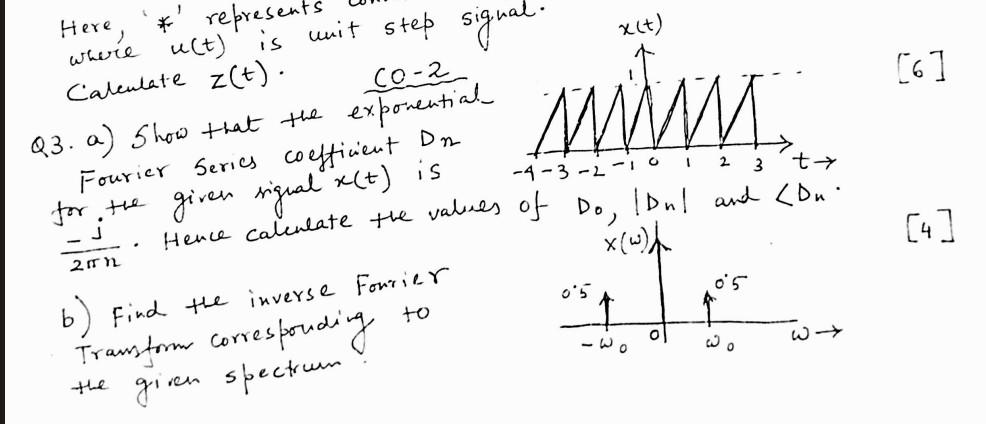 Here, '*' represents
where u(t) is unit step signal.
Calculate z(t).
[6]
CO-2
Q3. a) Show that the exponential
Fourier Series coefficient Dn
for the given signal x(t) is
-j/2πn . Hence calculate the values of D0, |Dn| and <Dn.
[4]
x(t)
1
-4 -3 -2 -1 0 1 2 3 t→
b) Find the inverse Fourier
Transform corresponding to
the given spectrum.
X(ω)
0.5 0.5
-ω0 0 ω0 ω→